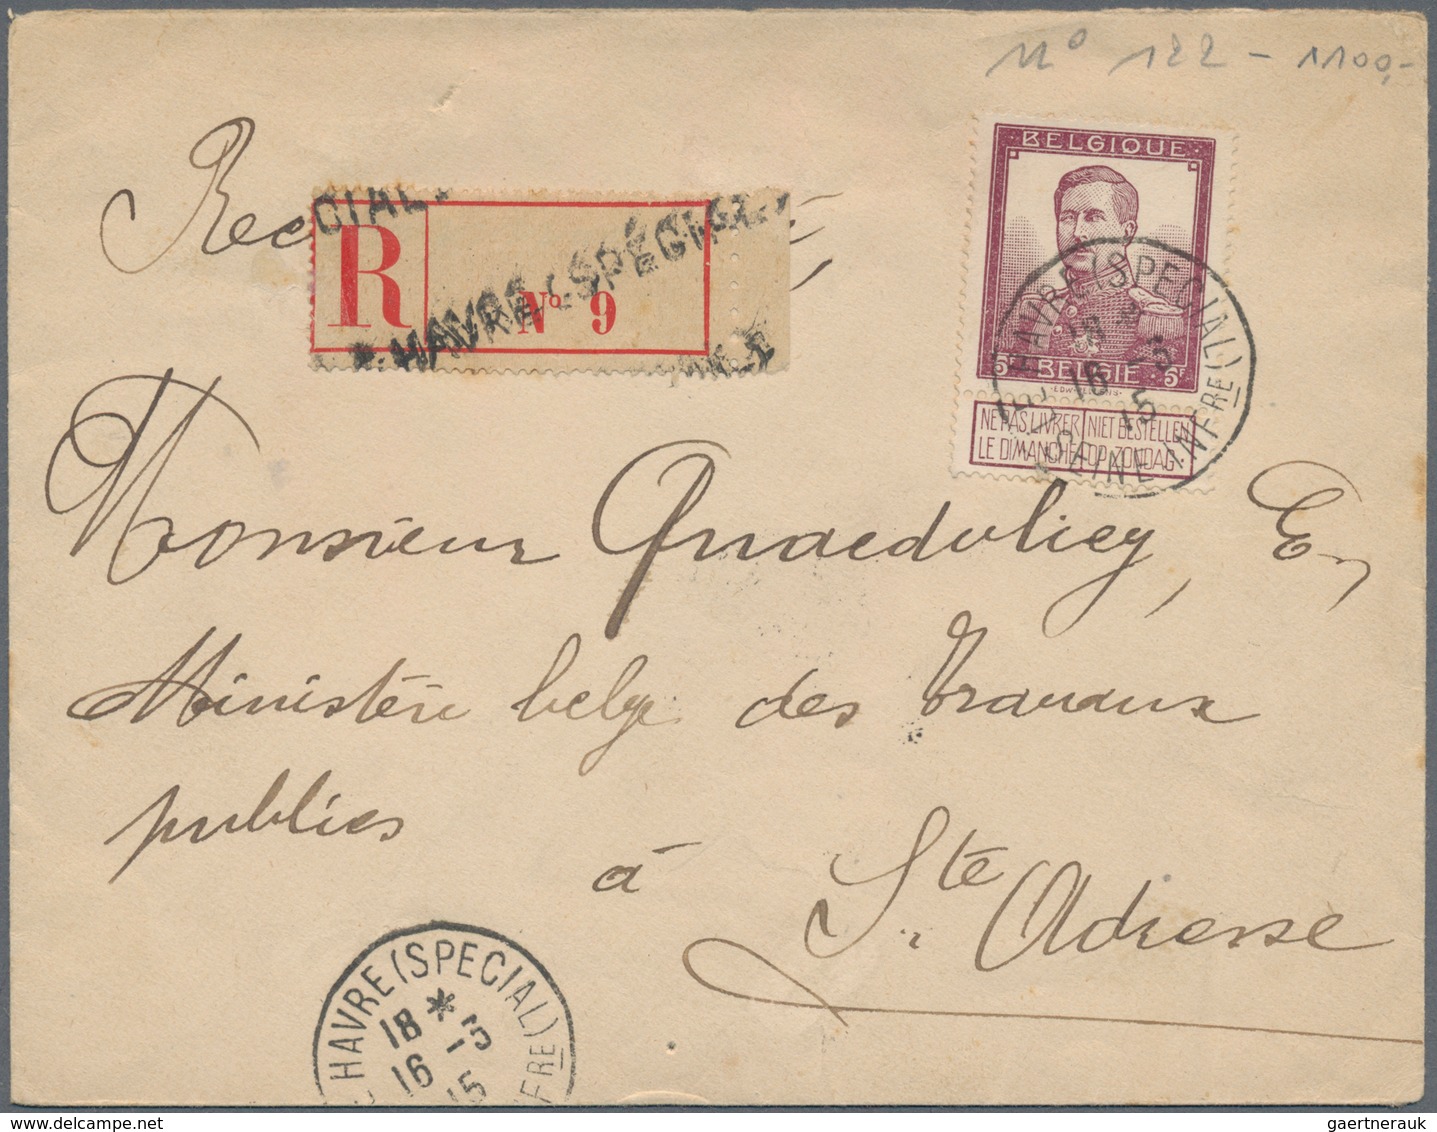 No 122 - 1100,-
BELGIQUE
R
CIAL.
HAVRE (SPÉCIAL)
No 9
5F BELGIE 5F
NE PAS LIVRER LE DIMANCHE
NIET BESTELLEN OP ZONDAG.
HAVRE (SPECIAL)
18 * -5
16 15
SEINE INFRE
Monsieur Quaedvlieg,
Ministère belge des Travaux
publics
à Ste Adresse
HAVRE (SPECIAL)
18 * -5
16 15
FRE
gaertnerauk